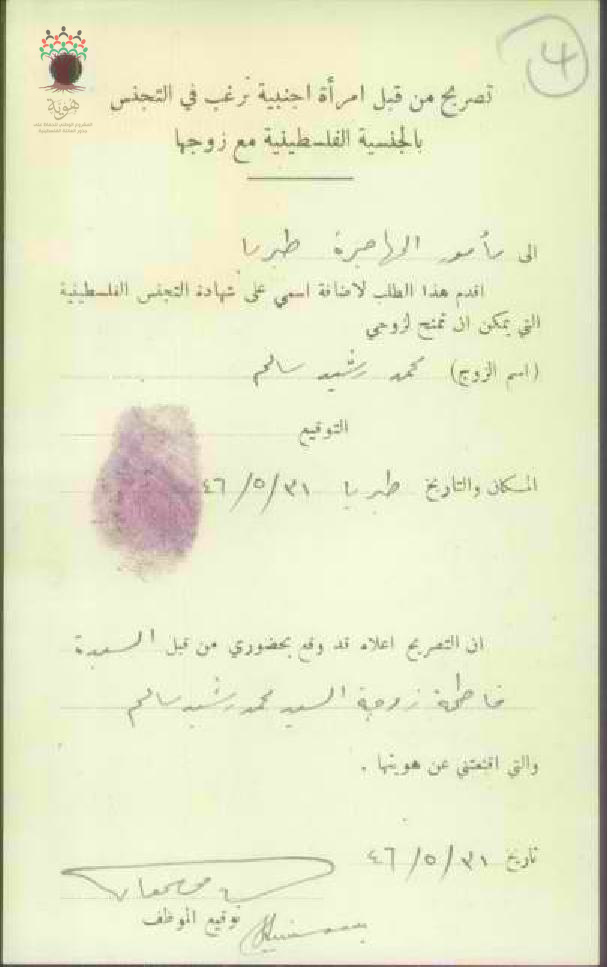 ٤
هوية
تصريح من قبل امرأة اجنبية ترغب في التجنس
بالجنسية الفلسطينية مع زوجها
الى مأمور المهاجرة طبريا
اقدم هذا الطلب لاضافة اسمي على شهادة التجنس الفلسطينية
التي يمكن ان تمنح لزوجي
(اسم الزوج) محمد رشيد سالم
التوقيع
المكان والتاريخ طبريا ٣١/٥/٤٦
ان التصريح اعلاه قد وقع بحضوري من قبل السيدة
فاطمة زوجة السيد محمد رشيد سالم
والتي اقنعتني عن هويتها .
تاريخ ٣١/٥/٤٦
توقيع الموظف